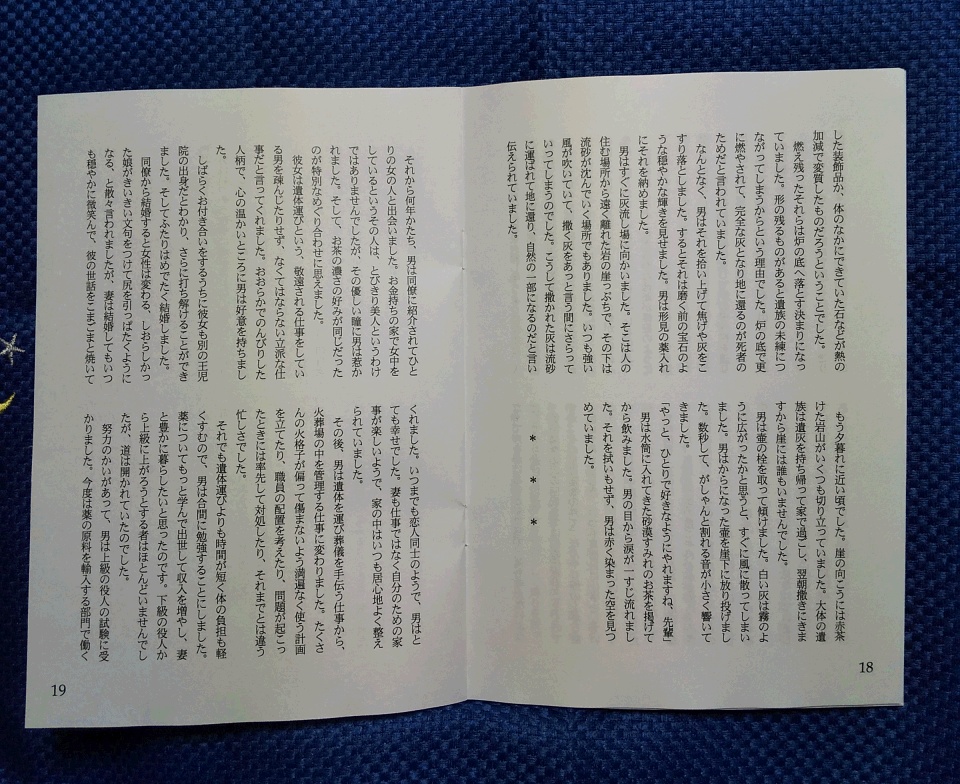 した装飾品か、体のなかにできていた石などが熱の
加減で変質したものだろうということでした。
燃え残ったそれらは炉の底へ落とす決まりになっ
ていました。形の残るものがあると遺族の未練につ
ながってしまうからという理由でした。炉の底で更
に燃やされて、完全な灰となり地に還るのが死者の
ためだと言われていました。
なんとなく、男はそれを拾い上げて焦げや灰をこ
すり落としました。するとそれは磨く前の宝石のよ
うな穏やかな輝きを見せました。男は形見の薬入れ
にそれを納めました。
男はすぐに灰流し場に向かいました。そこは人の
住む場所から遠く離れた岩の崖っぷちで、その下は
流砂が沈んでいく場所でもありました。いつも強い
風が吹いていて、撒く灰をあっと言う間にさらって
いってしまうのでした。こうして撒かれた灰は流砂
に運ばれて地に還り、自然の一部になるのだと言い
伝えられていました。
もう夕暮れに近い頃でした。崖の向こうには赤茶
けた岩山がいくつも切り立っていました。大体の遺
族は遺灰を持ち帰って家で過ごし、翌朝撒きにきま
すから崖には誰もいませんでした。
男は壺の栓を取って傾けました。白い灰は霧のよ
うに広がったかと思うと、すぐに風に散ってしまい
ました。男はからになった壺を崖下に放り投げまし
た。数秒して、がしゃんと割れる音が小さく響いて
きました。
「やっと、ひとりで好きなようにやれますね、先輩」
男は水筒に入れてきた砂漠すみれのお茶を掲げて
から飲みました。男の目から涙が一すじ流れまし
た。それを拭いもせず、男は赤く染まった空を見つ
めていました。
＊ ＊ ＊
18
それから何年かたち、男は同僚に紹介されてひと
りの女の人と出会いました。お金持ちの家で女中を
しているというその人は、とびきり美人というわけ
ではありませんでしたが、その優しい瞳に男は惹か
れました。そして、お茶の濃さの好みが同じだった
のが特別なめぐり合わせに思えました。
彼女は遺体運びという、敬遠される仕事をしてい
る男を疎んじたりせず、なくてはならない立派な仕
事だと言ってくれました。おおらかでのんびりした
人柄で、心の温かいところに男は好意を持ちまし
た。
しばらくお付き合いをするうちに彼女も別の王児
院の出身だとわかり、さらに打ち解けることができ
ました。そしてふたりはめでたく結婚しました。
同僚から結婚すると女性は変わる、しおらしかっ
た娘がきいきい文句をつけて尻を引っぱたくように
なる、と散々言われましたが、妻は結婚してもいつ
も穏やかに微笑んで、彼の世話をこまごまと焼いて
くれました。いつまでも恋人同士のようで、男はと
ても幸せでした。妻も仕事ではなく自分のための家
事が楽しいようで、家の中はいつも居心地よく整え
られていました。
その後、男は遺体を運び葬儀を手伝う仕事から、
火葬場の中を管理する仕事に変わりました。たくさ
んの火格子が偏って傷まないよう満遍なく使う計画
を立てたり、職員の配置を考えたり、問題が起こっ
たときには率先して対処したり、それまでとは違う
忙しさでした。
それでも遺体運びよりも時間が短く体の負担も軽
くすむので、男は合間に勉強することにしました。
薬についてもっと学んで出世して収入を増やし、妻
と豊かに暮らしたいと思ったのです。下級の役人か
ら上級に上がろうとする者はほとんどいませんでし
たが、道は開かれていたのでした。
努力のかいがあって、男は上級の役人の試験に受
かりました。今度は薬の原料を輸入する部門で働く
19